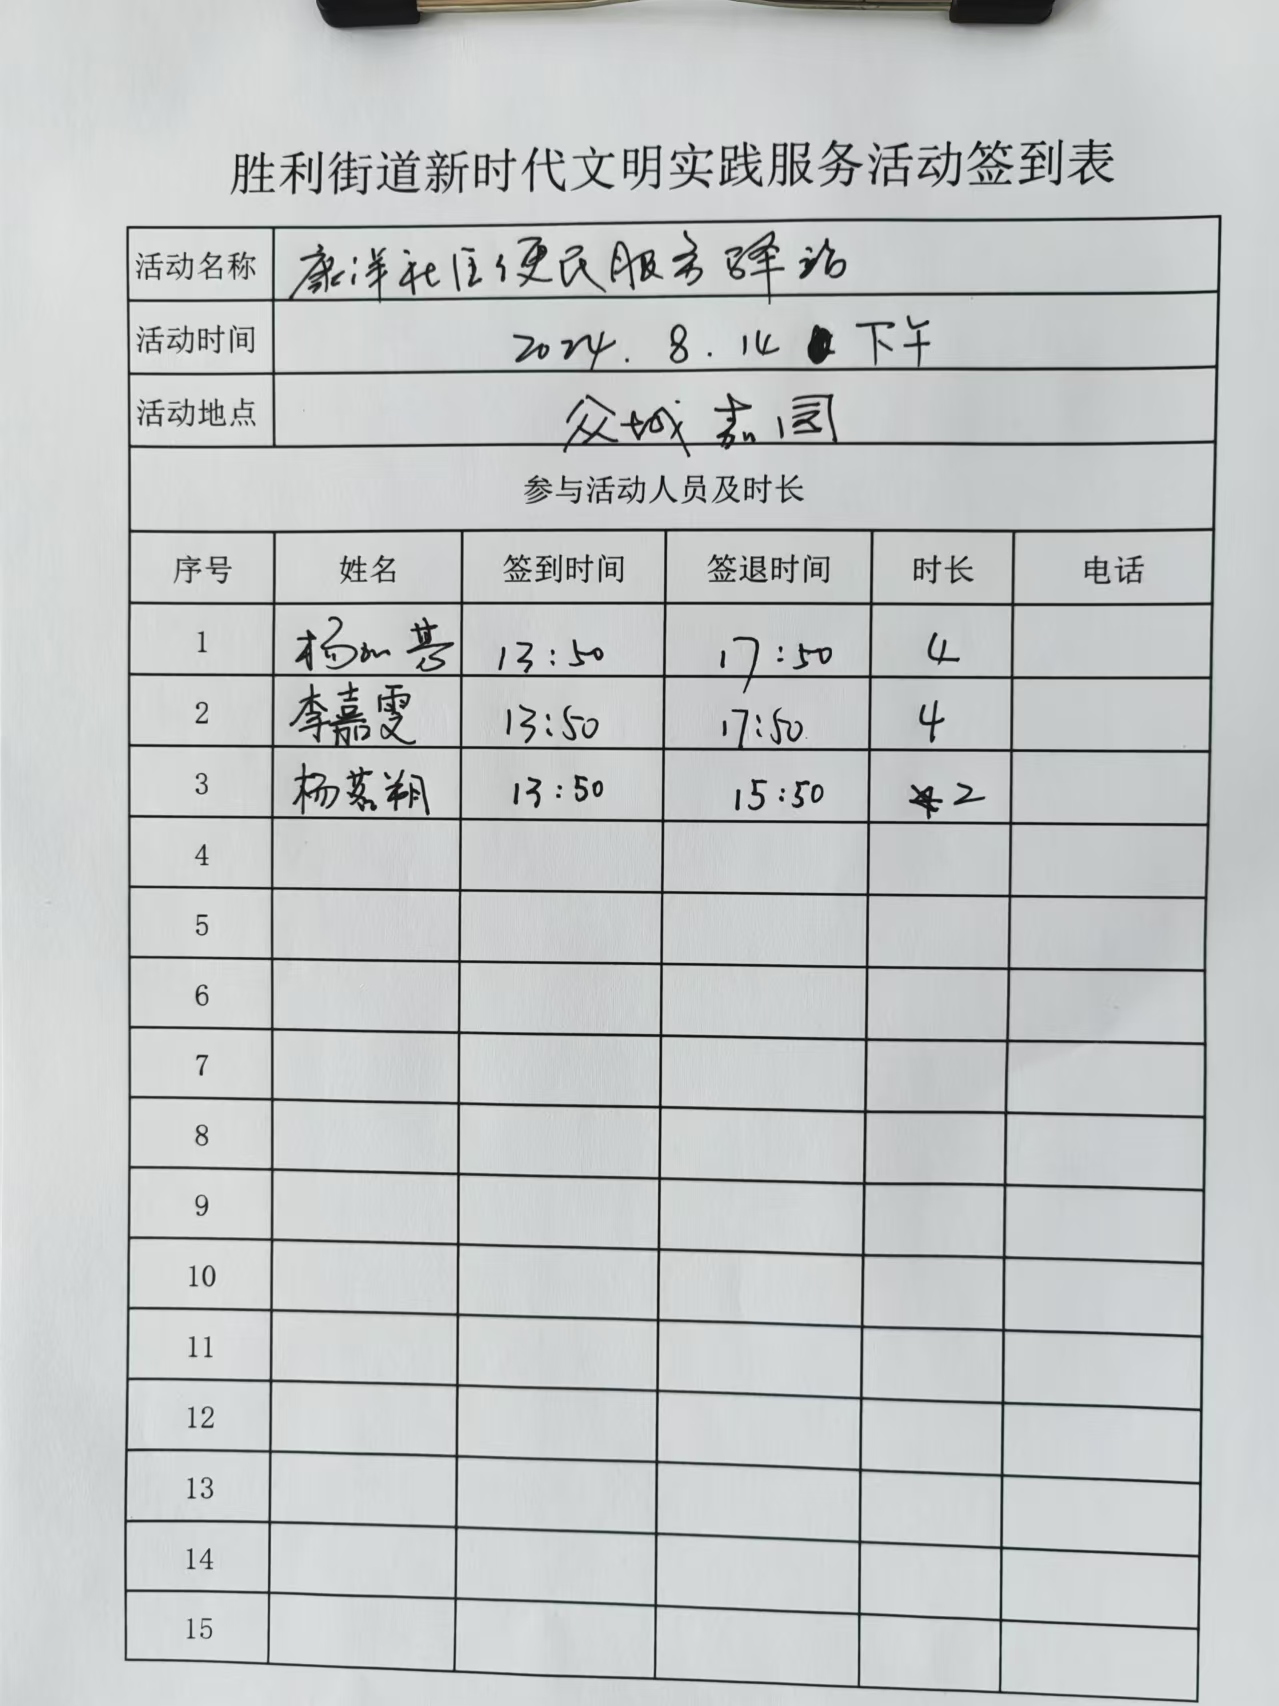 胜利街道新时代文明实践服务活动签到表
活动名称 康洋社区便民服务驿站
活动时间 2024.8.14 下午
活动地点 众城嘉园
参与活动人员及时长
序号 姓名 签到时间 签退时间 时长 电话
1 杨 13:50 17:50 4
2 李嘉雯 13:50 17:50 4
3 杨茗朔 13:50 15:50 2
4
5
6
7
8
9
10
11
12
13
14
15